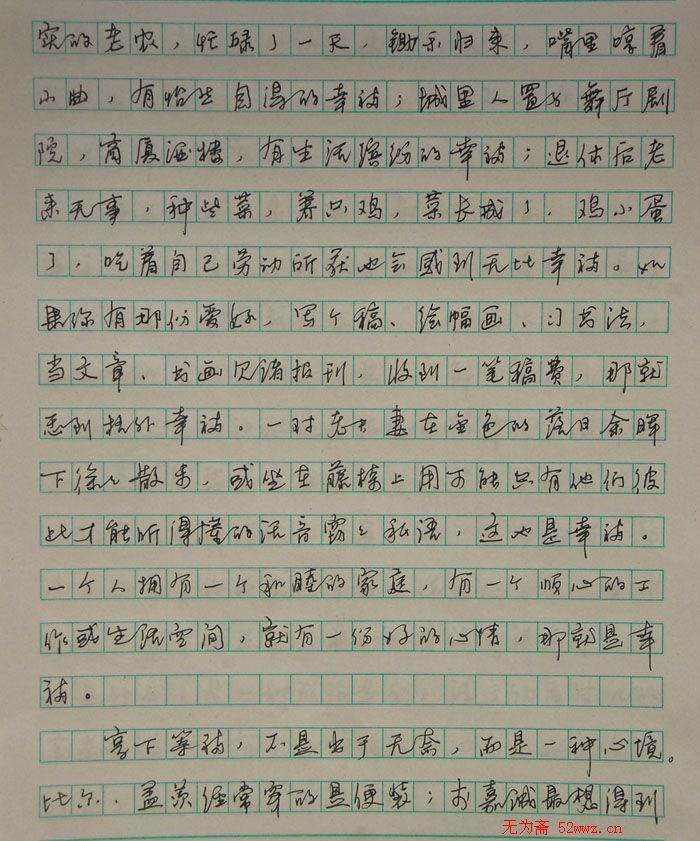 实的老农，忙碌了一天，锄禾归来，嘴里哼着
小曲，有怡然自得的幸福；城里人置身舞厅剧
院，高厦酒楼，有生活缤纷的幸福；退休后老
来无事，种些菜，养只鸡，菜长成了，鸡下蛋
了，吃着自己劳动所获也会感到无比幸福。如
果你有那份爱好，写个稿、绘幅画、习书法，
当文章、书画见诸报刊，收到一笔稿费，那就
感到格外幸福。一对老夫妻在金色的落日余晖
下徐々散步，或坐在藤椅上用可能只有他们彼
此才能听得懂的话音窃々私语，这也是幸福。
一个人拥有一个和睦的家庭，有一个顺心的工
作或生活空间，就有一份好的心情，那就是幸
福。
享下等福，不是出于无奈，而是一种心境。
比尔．盖茨经常穿的是便装；李嘉诚最想得到
无为斋 52wwz.cn